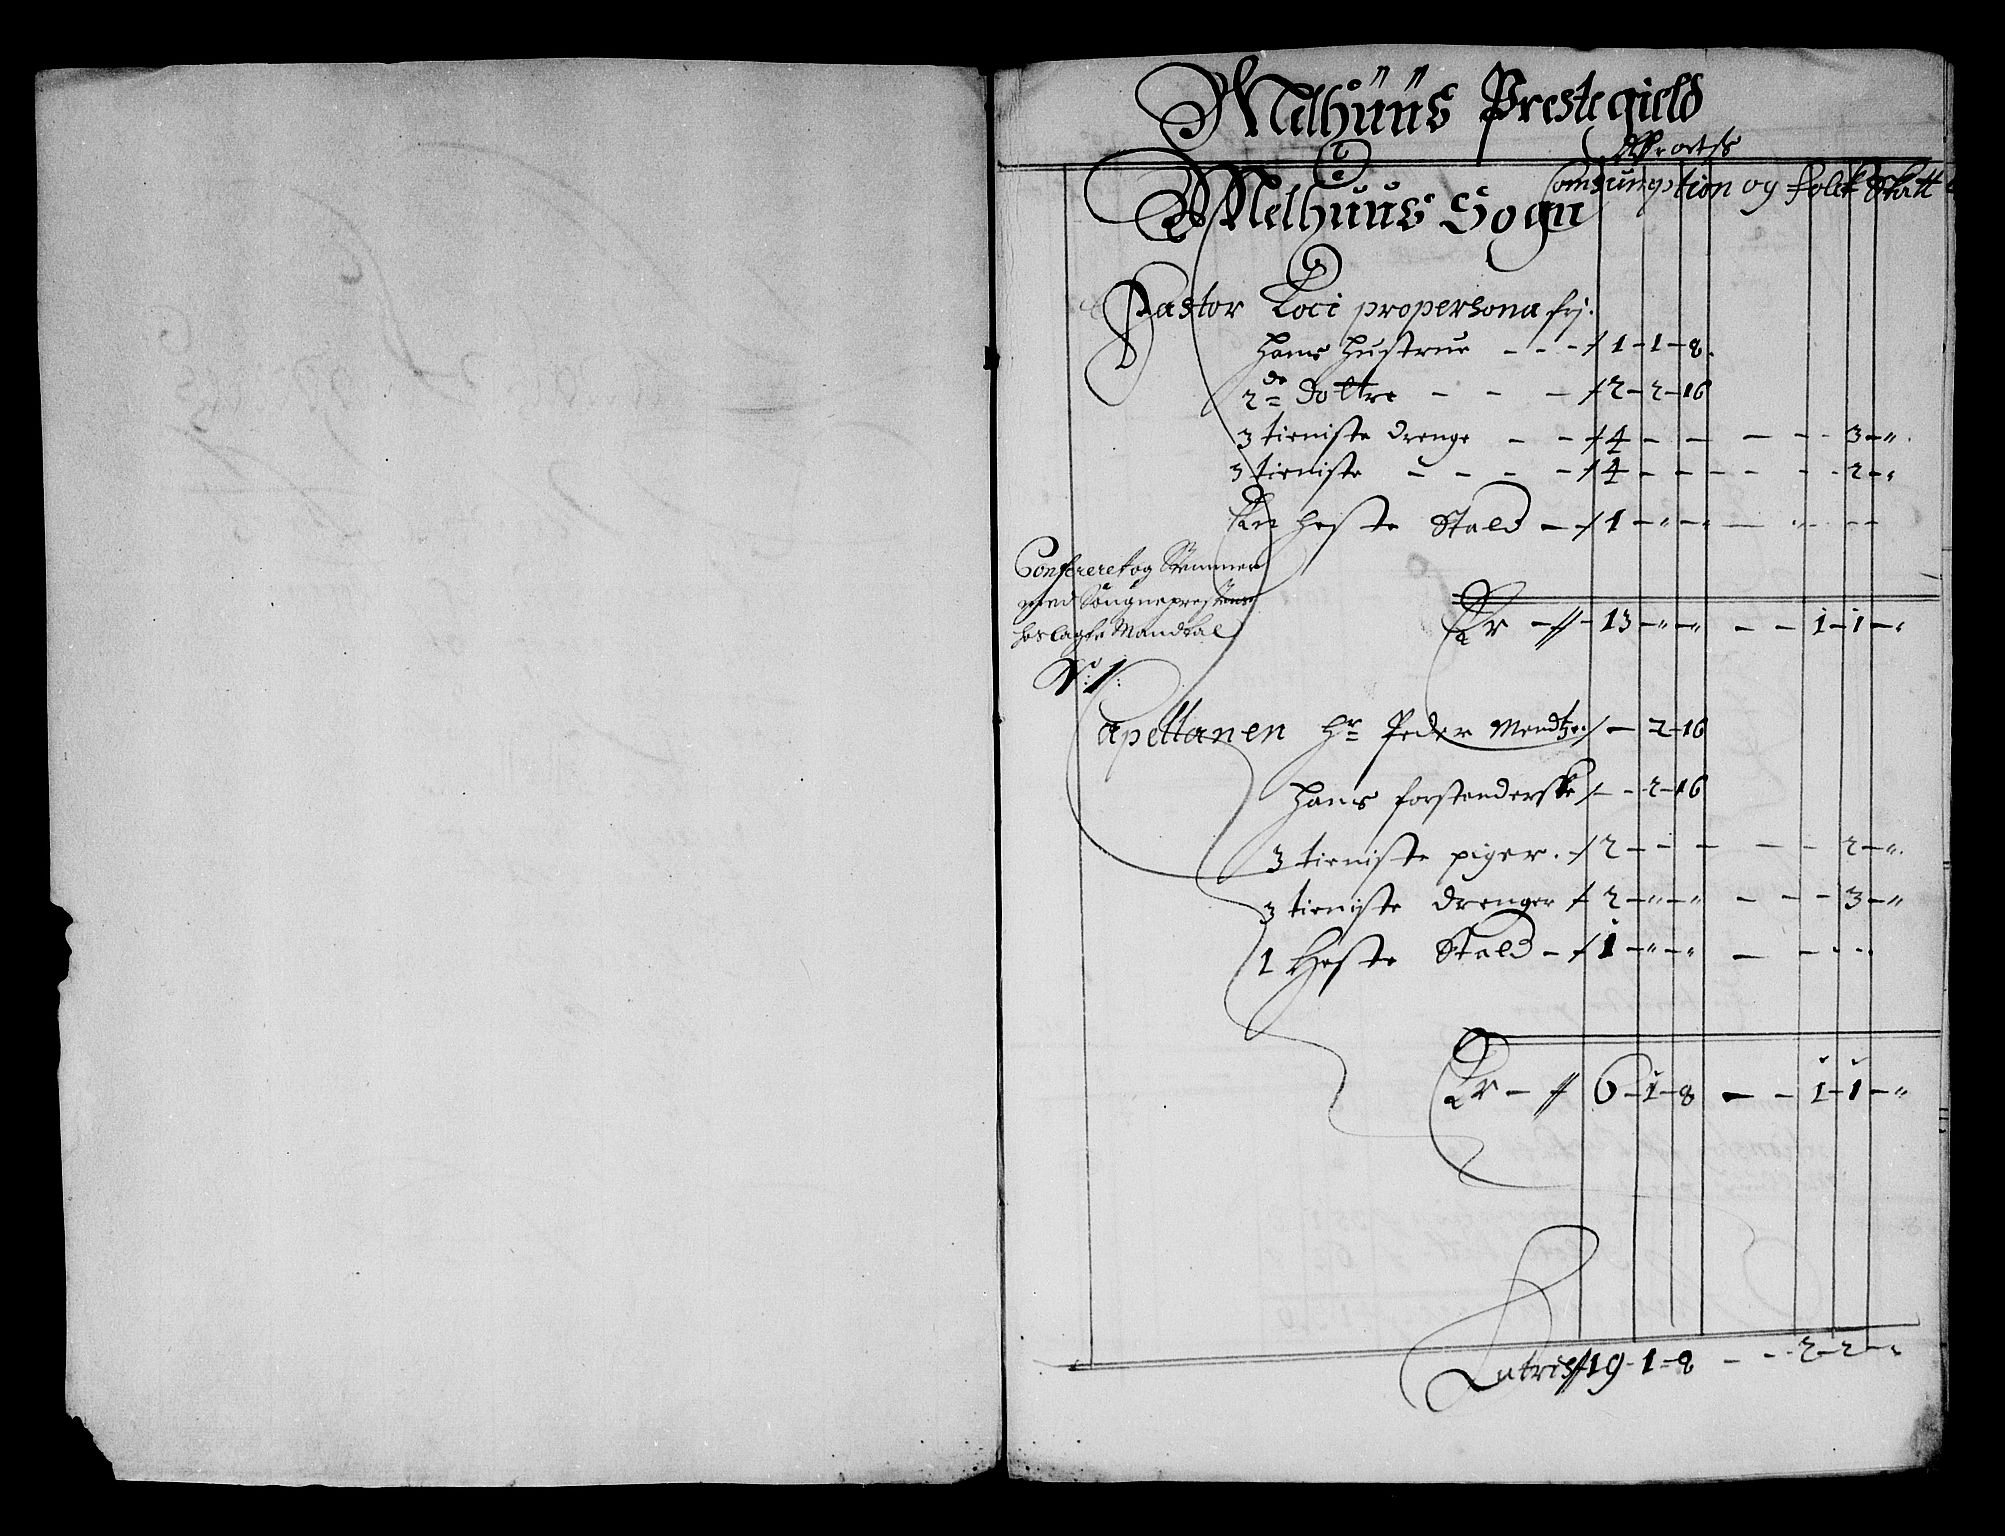 Melhuus Prestegield
Melhuus Sogn
Consumption og folck Skatt
Pastor Loci propersona frj.
hans hustrue - - - 1 - 1 - 8.
2de Dottre - - - 2 - 2 - 16
3 tieniste drenge - - 4 - - - - - 3 - "
3 tieniste - - - - 4 - - - - - 2 - "
En heste Stald - 1 - " - " - " - -
Confereret og Stemmer
med Sougneprestens
hoslagte Mandtal
No: 1:
Er - 13 - " - " - - 1 - 1 - "
Capellanen hr Peder - 2 - 16
hans forstenderske - - 2 - 16
3 tieniste piger. 2 - - - - - 2 - "
3 tieniste drenger 2 - " - " - - - 3 - "
1 Heste Stald - 1 - " - " - - - -
Er - 6 - 1 - 8 - - 1 - 1 - "
Latris 19 - 1 - 8 - - 2 - 2 - "